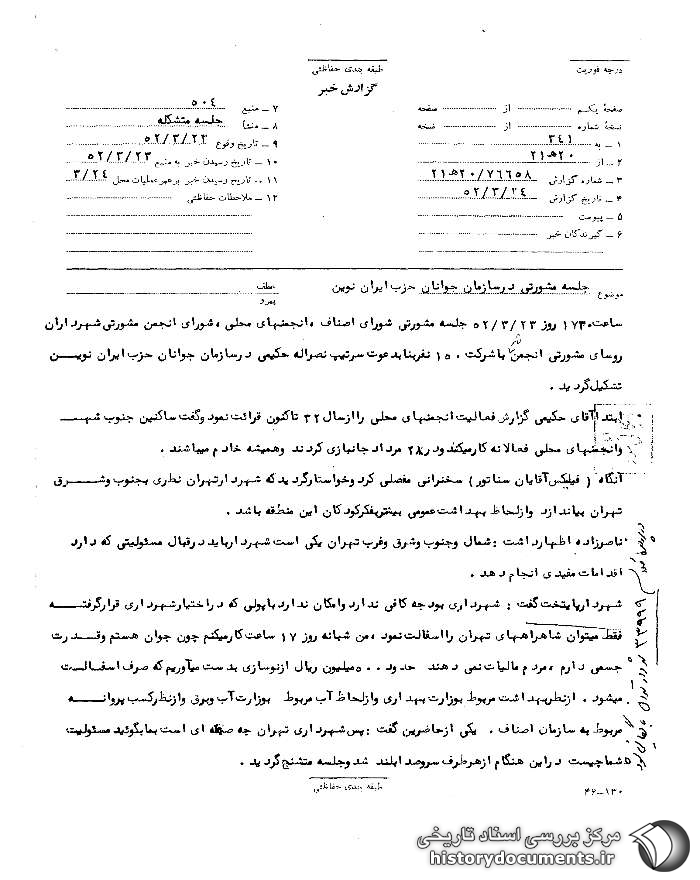 طبقه بندی حفاظتی
درجه فوریت
گزارش خبر
صفحهٔ یکم از صفحه
نسخهٔ شماره از نسخه
۱ ـ به ۳٤۱
۲ ـ از ۲۰ه۲۱
۳ ـ شماره گزارش ۲۰/۷۶۶۵۸ه۲۱
۴ ـ تاریخ گزارش ۵۲/۳/۲٤
۵ ـ پیوست
۶ ـ گیرندگان خبر
۷ ـ منبع ۵۰٤
۸ ـ منشأ جلسه متشکله
۹ ـ تاریخ وقوع ۵۲/۳/۲۳
۱۰ ـ تاریخ رسیدن خبر به منبع ۵۲/۳/۲۳
۱۱ ـ تاریخ رسیدن خبر برهبر عملیات محل ۳/۲٤
۱۲ ـ ملاحظات حفاظتی
موضوع جلسه مشورتی درسازمان جوانان حزب ایران نوین
عطف
پیرو
ساعت ۱۷۳۰ روز ۵۲/۳/۲۳ جلسه مشورتی شورای اصناف ، انجمنهای محلی ، شورای انجمن مشورتی شهرداران
روسای مشورتی انجمن باشرکت ۱۵۰ نفربنابدعوت سرتیپ نصراله حکیمی درسازمان جوانان حزب ایران نویـن
تشکیل گردید .
ابتدا آقای حکیمی گزارش فعالیت انجمنهای محلی را ازسال ۳۲ تاکنون قرائت نمود وگفت ساکنین جنوب شهـــر
وانجمنهای محلی فعالانه کارمیکنند ودر ۲۸ مرداد جانبازی کردند وهمیشه خادم میباشند .
آنگاه ( فیلکس آقایان سناتور ) سخنرانی مفصلی کرد وخواستارگردید که شهردارتهران نظری بجنوب وشــرق
تهران بیاندازد وازلحاظ بهداشت عمومی بیشتربفکرکودکان این منطقه باشد .
ناصرزاده اظهارداشت : شمال وجنوب وشرق وغرب تهران یکی است شهردارباید درقبال مسئولیتی که دارد
اقدامات مفیدی انجام دهد .
شهردارپایتخت گفت : شهرداری بودجه کافی ندارد وامکان ندارد باپولی که دراختیارشهرداری قرارگرفتـــه
فقط میتوان شاهراههای تهران را اسفالت نمود ، من شبانه روز ۱۷ ساعت کارمیکنم چون جوان هستم وقـــدرت
جسمی دارم ، مردم مالیات نمی دهند حدود ۵۰۰ میلیون ریال ازنوسازی بدست میآوریم که صرف اسفـالـت
میشود . ازنظربهداشت مربوط بوزارت بهداری وازلحاظ آب مربوط بوزارت آب وبرق وازنظرکسب پروانــــه
مربوط به سازمان اصناف . یکی ازحاضرین گفت : پس شهرداری تهران چه صیغه ای است بمابگوئید مسئولیت
شماچیست دراین هنگام ازهرطرف سروصدابلند شد وجلسه متشنج گردید .
۳۳۹۹۹
طبقه بندی حفاظتی
۴۶ـ۱۳۰
مرکز بررسی اسناد تاریخی
historydocuments.ir